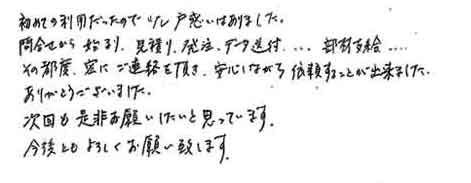 初めての利用だったので少し戸惑いはありました。
問合せから始まり、見積り、発注、データ送付、… 部材支給 ….
その都度、密にご連絡を頂き、安心しながら依頼することが出来ました。
ありがとうございました。
次回も是非お願いしたいと思っています。
今後ともよろしくお願い致します。